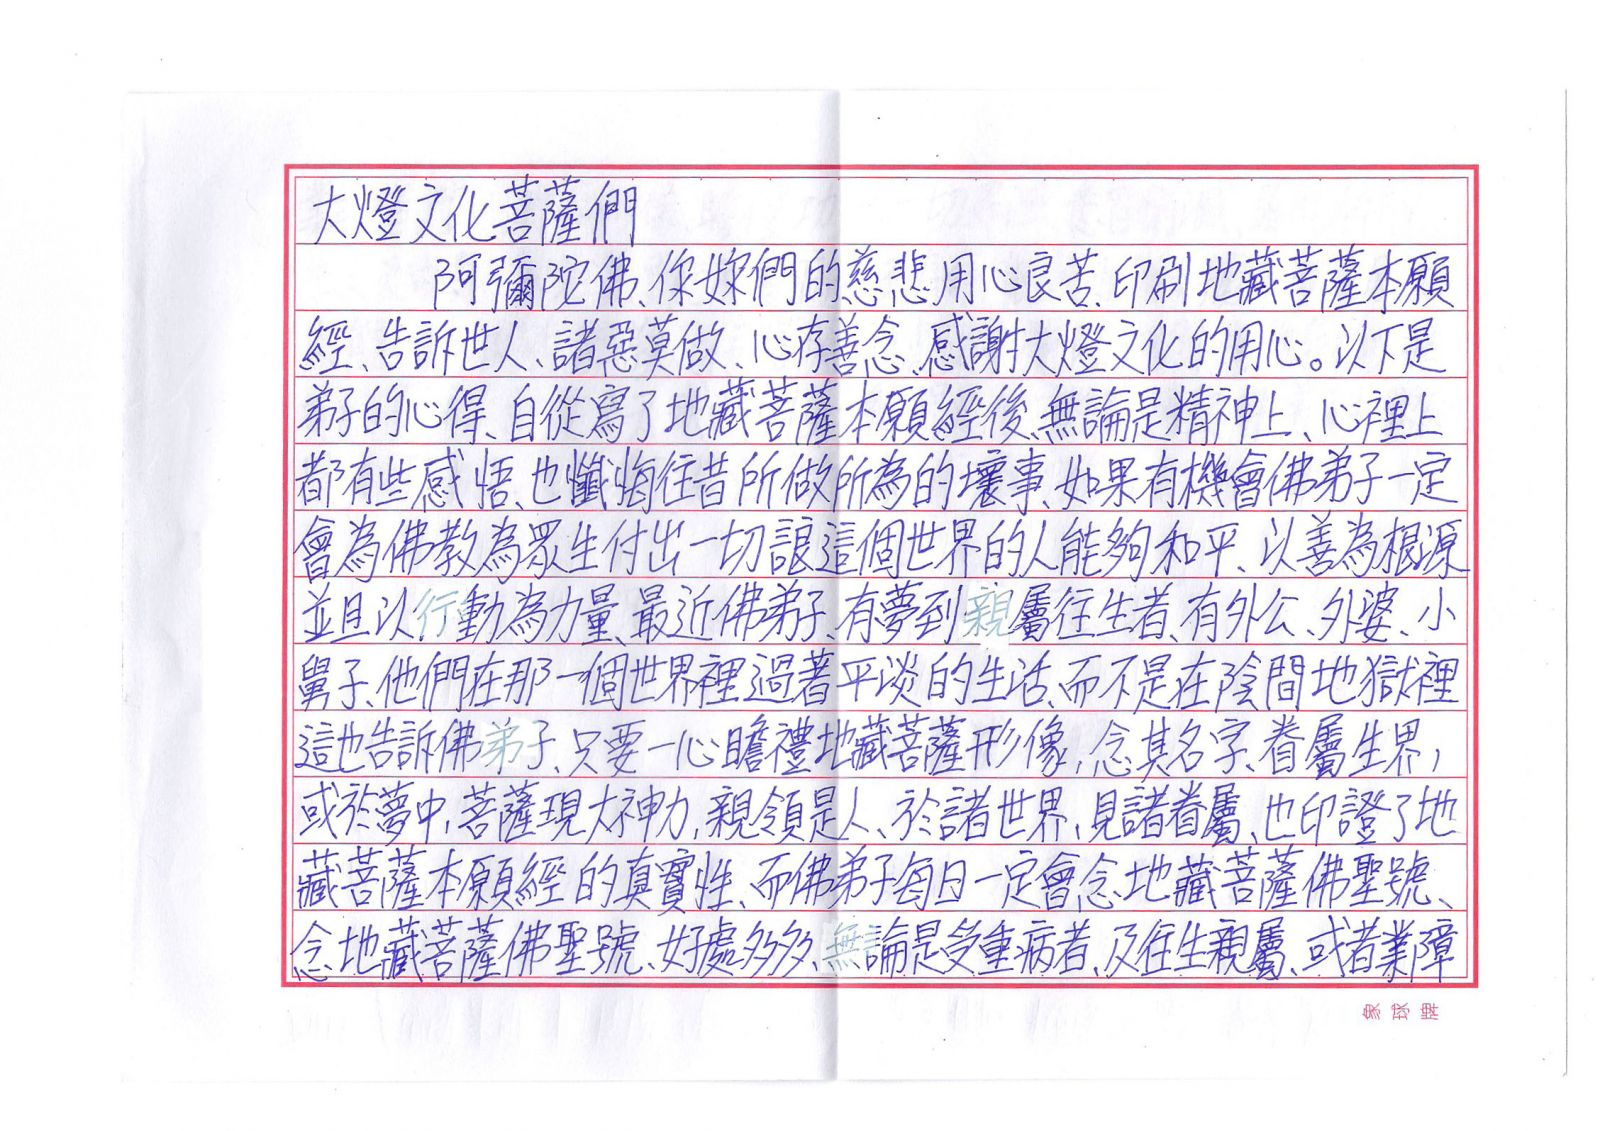 大燈文化菩薩們
阿彌陀佛、你妳們的慈悲用心良苦、印刷地藏菩薩本願
經、告訴世人、諸惡莫做、心存善念、感謝大燈文化的用心。以下是
弟子的心得、自從寫了地藏菩薩本願經後、無論是精神上、心裡上
都有些感悟、也懺悔往昔所做所為的壞事、如果有機會佛弟子一定
會為佛教為眾生付出一切讓這個世界的人能夠和平、以善為根源
並且以行動為力量、最近佛弟子、有夢到親屬往生者、有外公、外婆、小
舅子、他們在那一個世界裡過著平淡的生活、而不是在陰間地獄裡
這也告訴佛弟子、只要一心瞻禮地藏菩薩形像，念其名字、眷屬生界，
或於夢中，菩薩現大神力，親領是人、於諸世界，見諸眷屬、也印證了地
藏菩薩本願經的真實性、而佛弟子每日一定會念、地藏菩薩佛聖號、
念、地藏菩薩佛聖號、好處多多、無論是受重病者、及往生親屬、或者業障